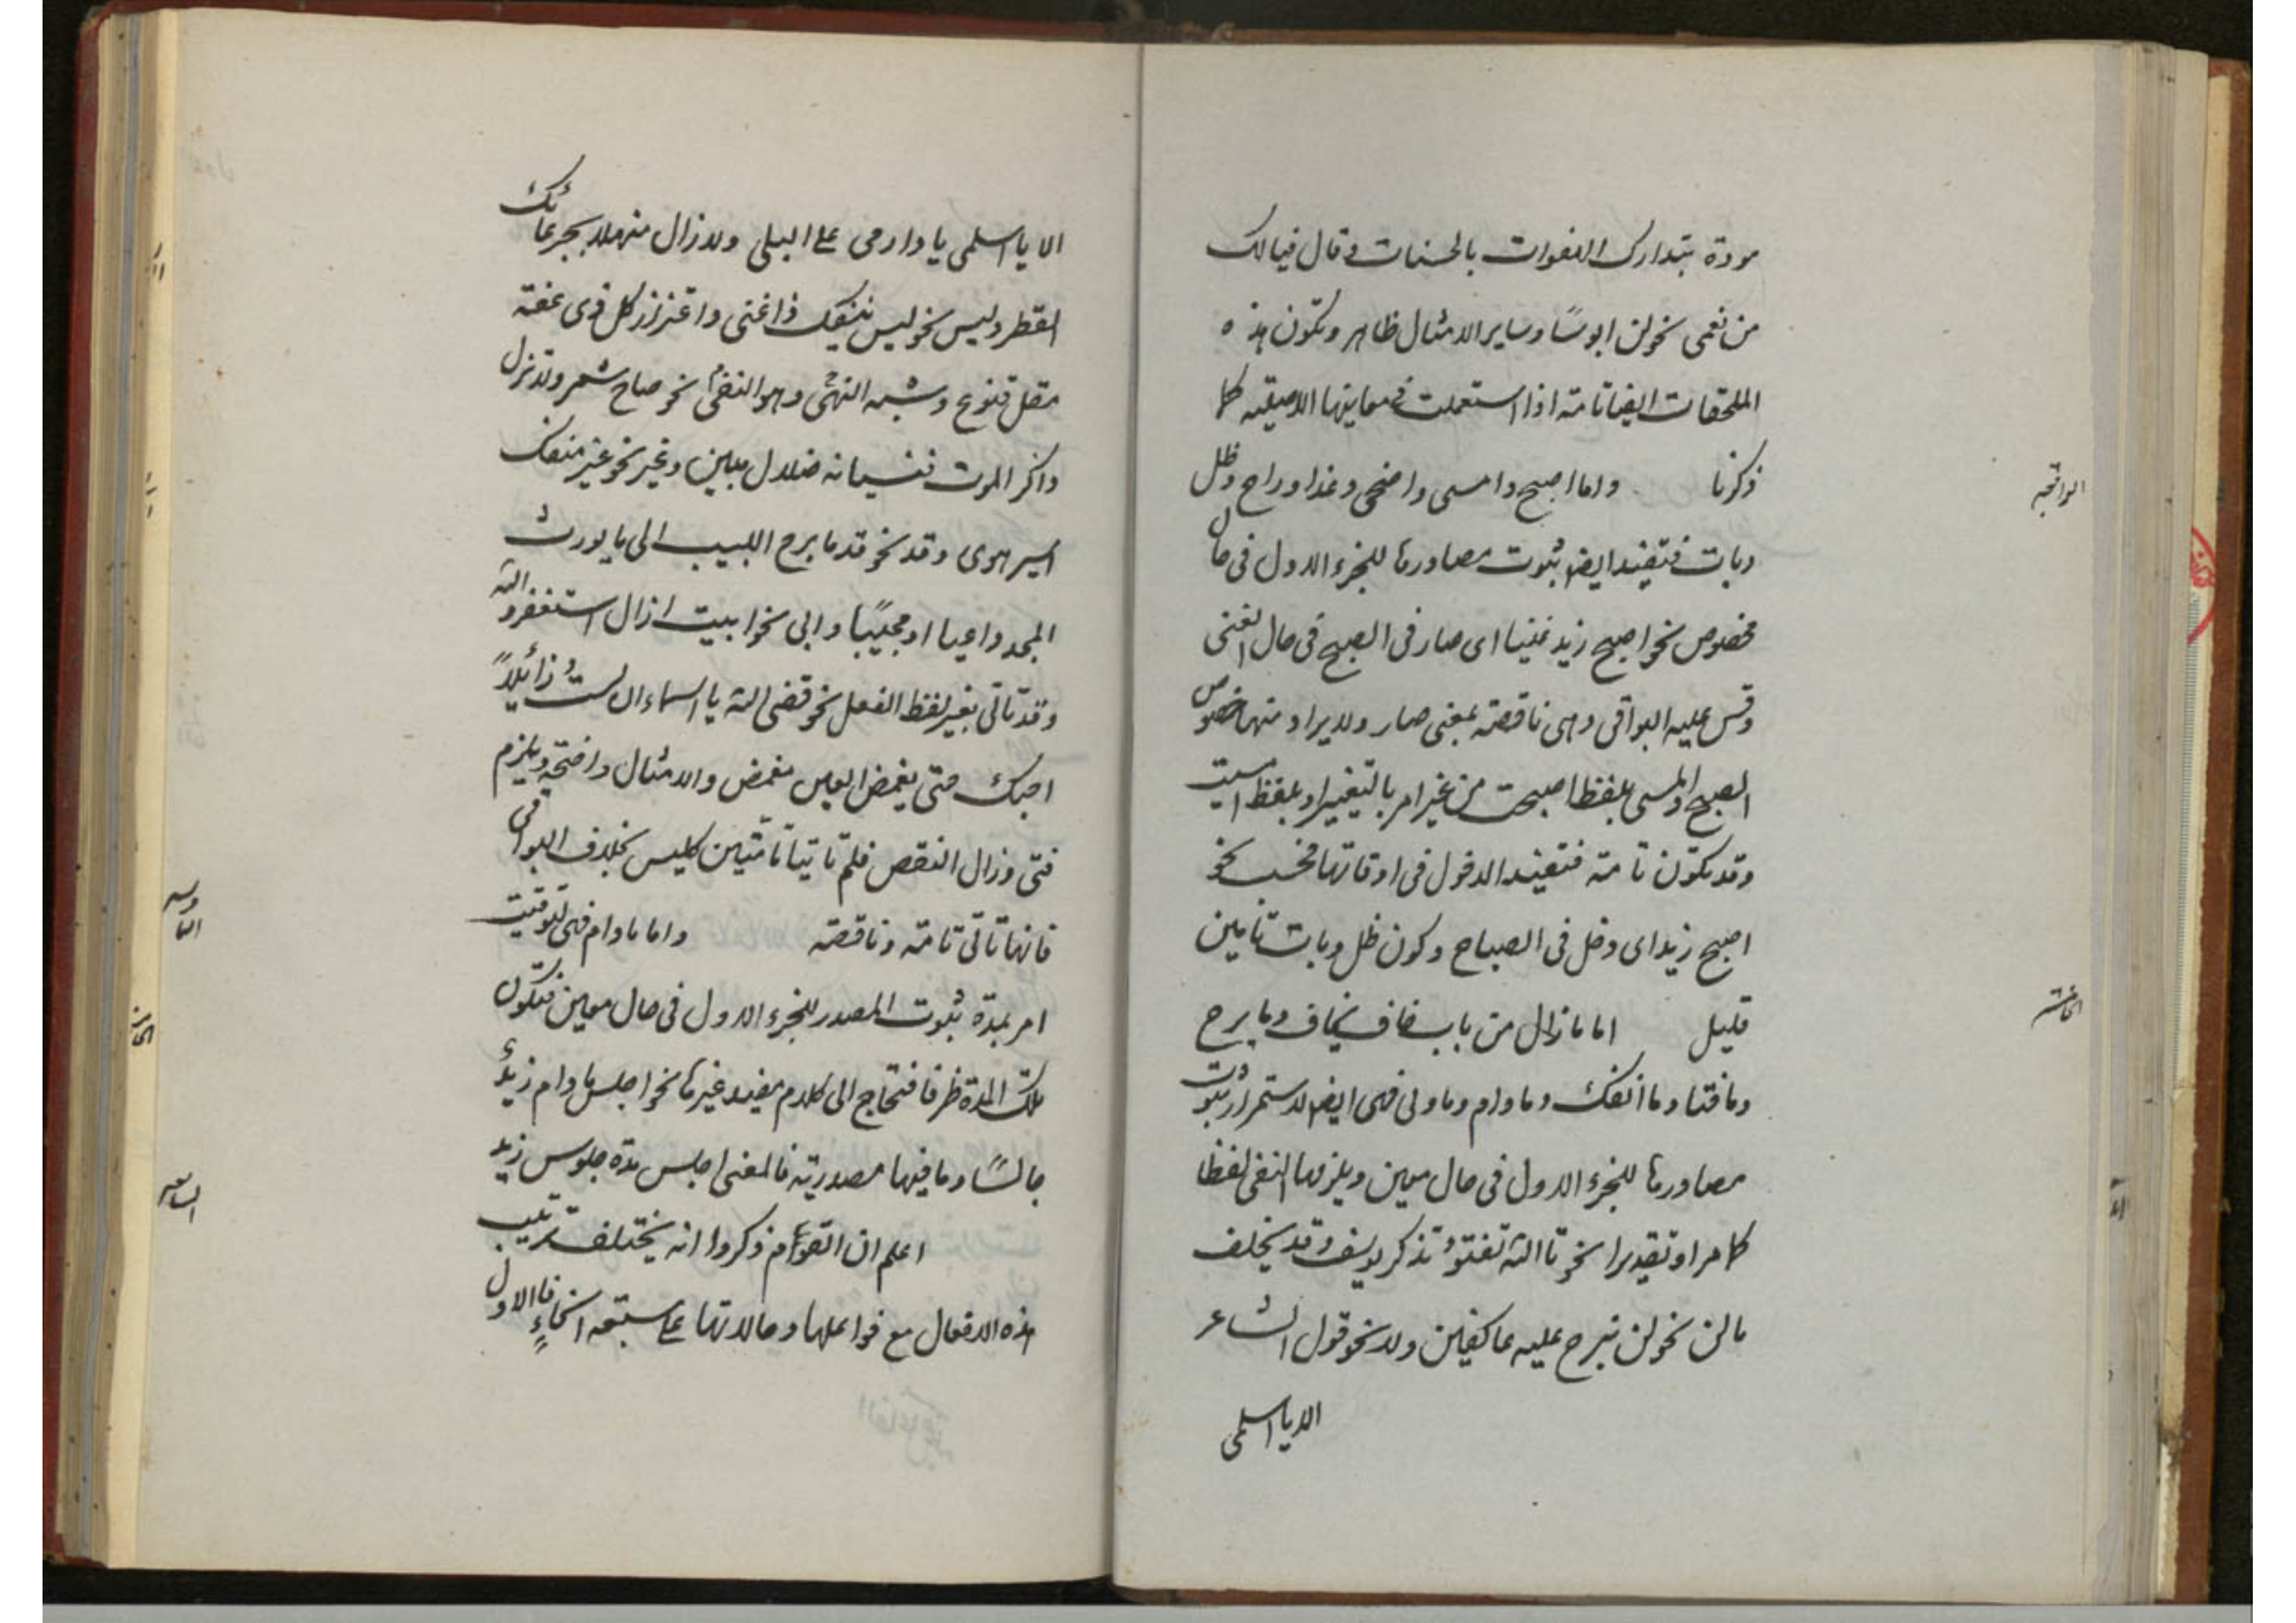 مودة بتدارك الهفوات بالحسنات وقال فيالك
من نعمى تحولن ابوسًا وساير الامثال ظاهر وتكون هذه
الملحقات ايضا تامة اذا استعملت في معاينها الاصلية كما
ذكرنا واما اصبح وامسى واضحى وغدا وراح وظل
وبات فتفيد ايضا ثبوت مصادرها للجزء الاول في حال
مخصوص نحو اصبح زيد غنيا اى صار فى الصبح فى حال الغنى
وقس عليه البواقى وهى ناقصة بمعنى صار ولا يراد منها خصوص
الصبح والمسى بلفظ اصبحت من غير امر بالتغيير او بلفظ امسيت
وقد تكون تامة فتفيد الدخول فى اوقاتها فحسب نحو
اصبح زيد اى دخل فى الصباح وكون ظل وبات تامين
قليل اما مازال من باب خاف يخاف وما برح
وما فتا وما انفك وما دام وما ونى فهى ايضا لاستمرار ثبوت
مصادرها للجزء الاول فى حال معين ويلزمها النفى لفظا
كما مر او تقديرا نحو تالله تفتؤ تذكر يوسف وقد يخلف
ما لن نحو لن نبرح عليه عاكفين ولا نحو قول الشاعر
الا يا اسلمى
الرابعة
الخامسة
الا يا اسلمى يا دار مى على البلى ولا زال منهلا بجرعائك
القطر وليس نحو ليس ينفك ذا غنى واعتزاز كل ذى عفة
مقل قنوع وشبه النهى وهو النفى نحو صاح شمر ولا تزل
ذاكر الموت فنسيانه ضلال مبين وغير نحو غير منفك
اسير هوى وقد نحو قد ما برح اللبيب الى ما يورث
المجد داعيا او مجيبًا وابى نحو ابيت ازال استغفر الله
وقد تاتى بغير لفظ الفعل نحو قضى الله يا اسماء ان لستُ زائلاً
احبك حتى يغمض العين مغمض والامثال واضحة ويلزم
فتى وزال النقص فلم تاتيا تامتين كليس بخلاف البواقى
فانها تاتى تامة وناقصة واما مادام فهى لتوقيت
امر بمدة ثبوت المصدر للجزء الاول فى حال معين فتكون
تلك المدة ظرفا فتحتاج الى كلام مفيد غيرها نحو اجلس ما دام زيدٌ
جالسًا وما فيها مصدرية فالمعنى اجلس مدة جلوس زيد
اعلم ان القوم ذكروا انه يختلف ترتيب
هذه الافعال مع فواعلها وحالاتها على سبعة انحاءٍ فالاول
السادسه
السابعه